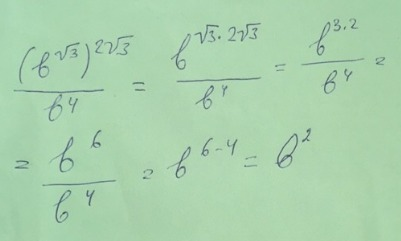 (b^√3)^2√3 / b^4 = b^√3·2√3 / b^4 = b^3·2 / b^4 =
= b^6 / b^4 = b^6-4 = b^2